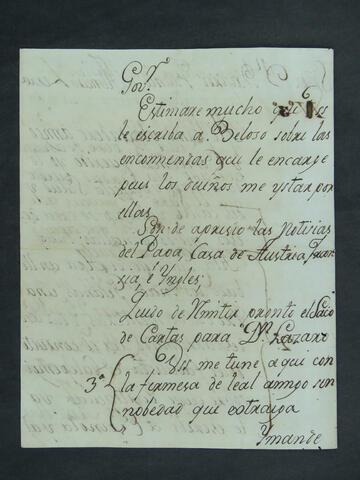 Gov.r
Estimare mucho que
le escriba a Beloso sobre las
encomendas que le encarge
pues los dueños me ystan por
ellas
de aprisio las Notisias
del Papa, Casa de Austria, Fran
sia, é Yngles;
Luido de Rmitir pronto el Saco
de Cartas para Dn. Lazaro
Vss me tiene aqui con
3a la firmesa de leal amigo sin
nobedad que
Ymande